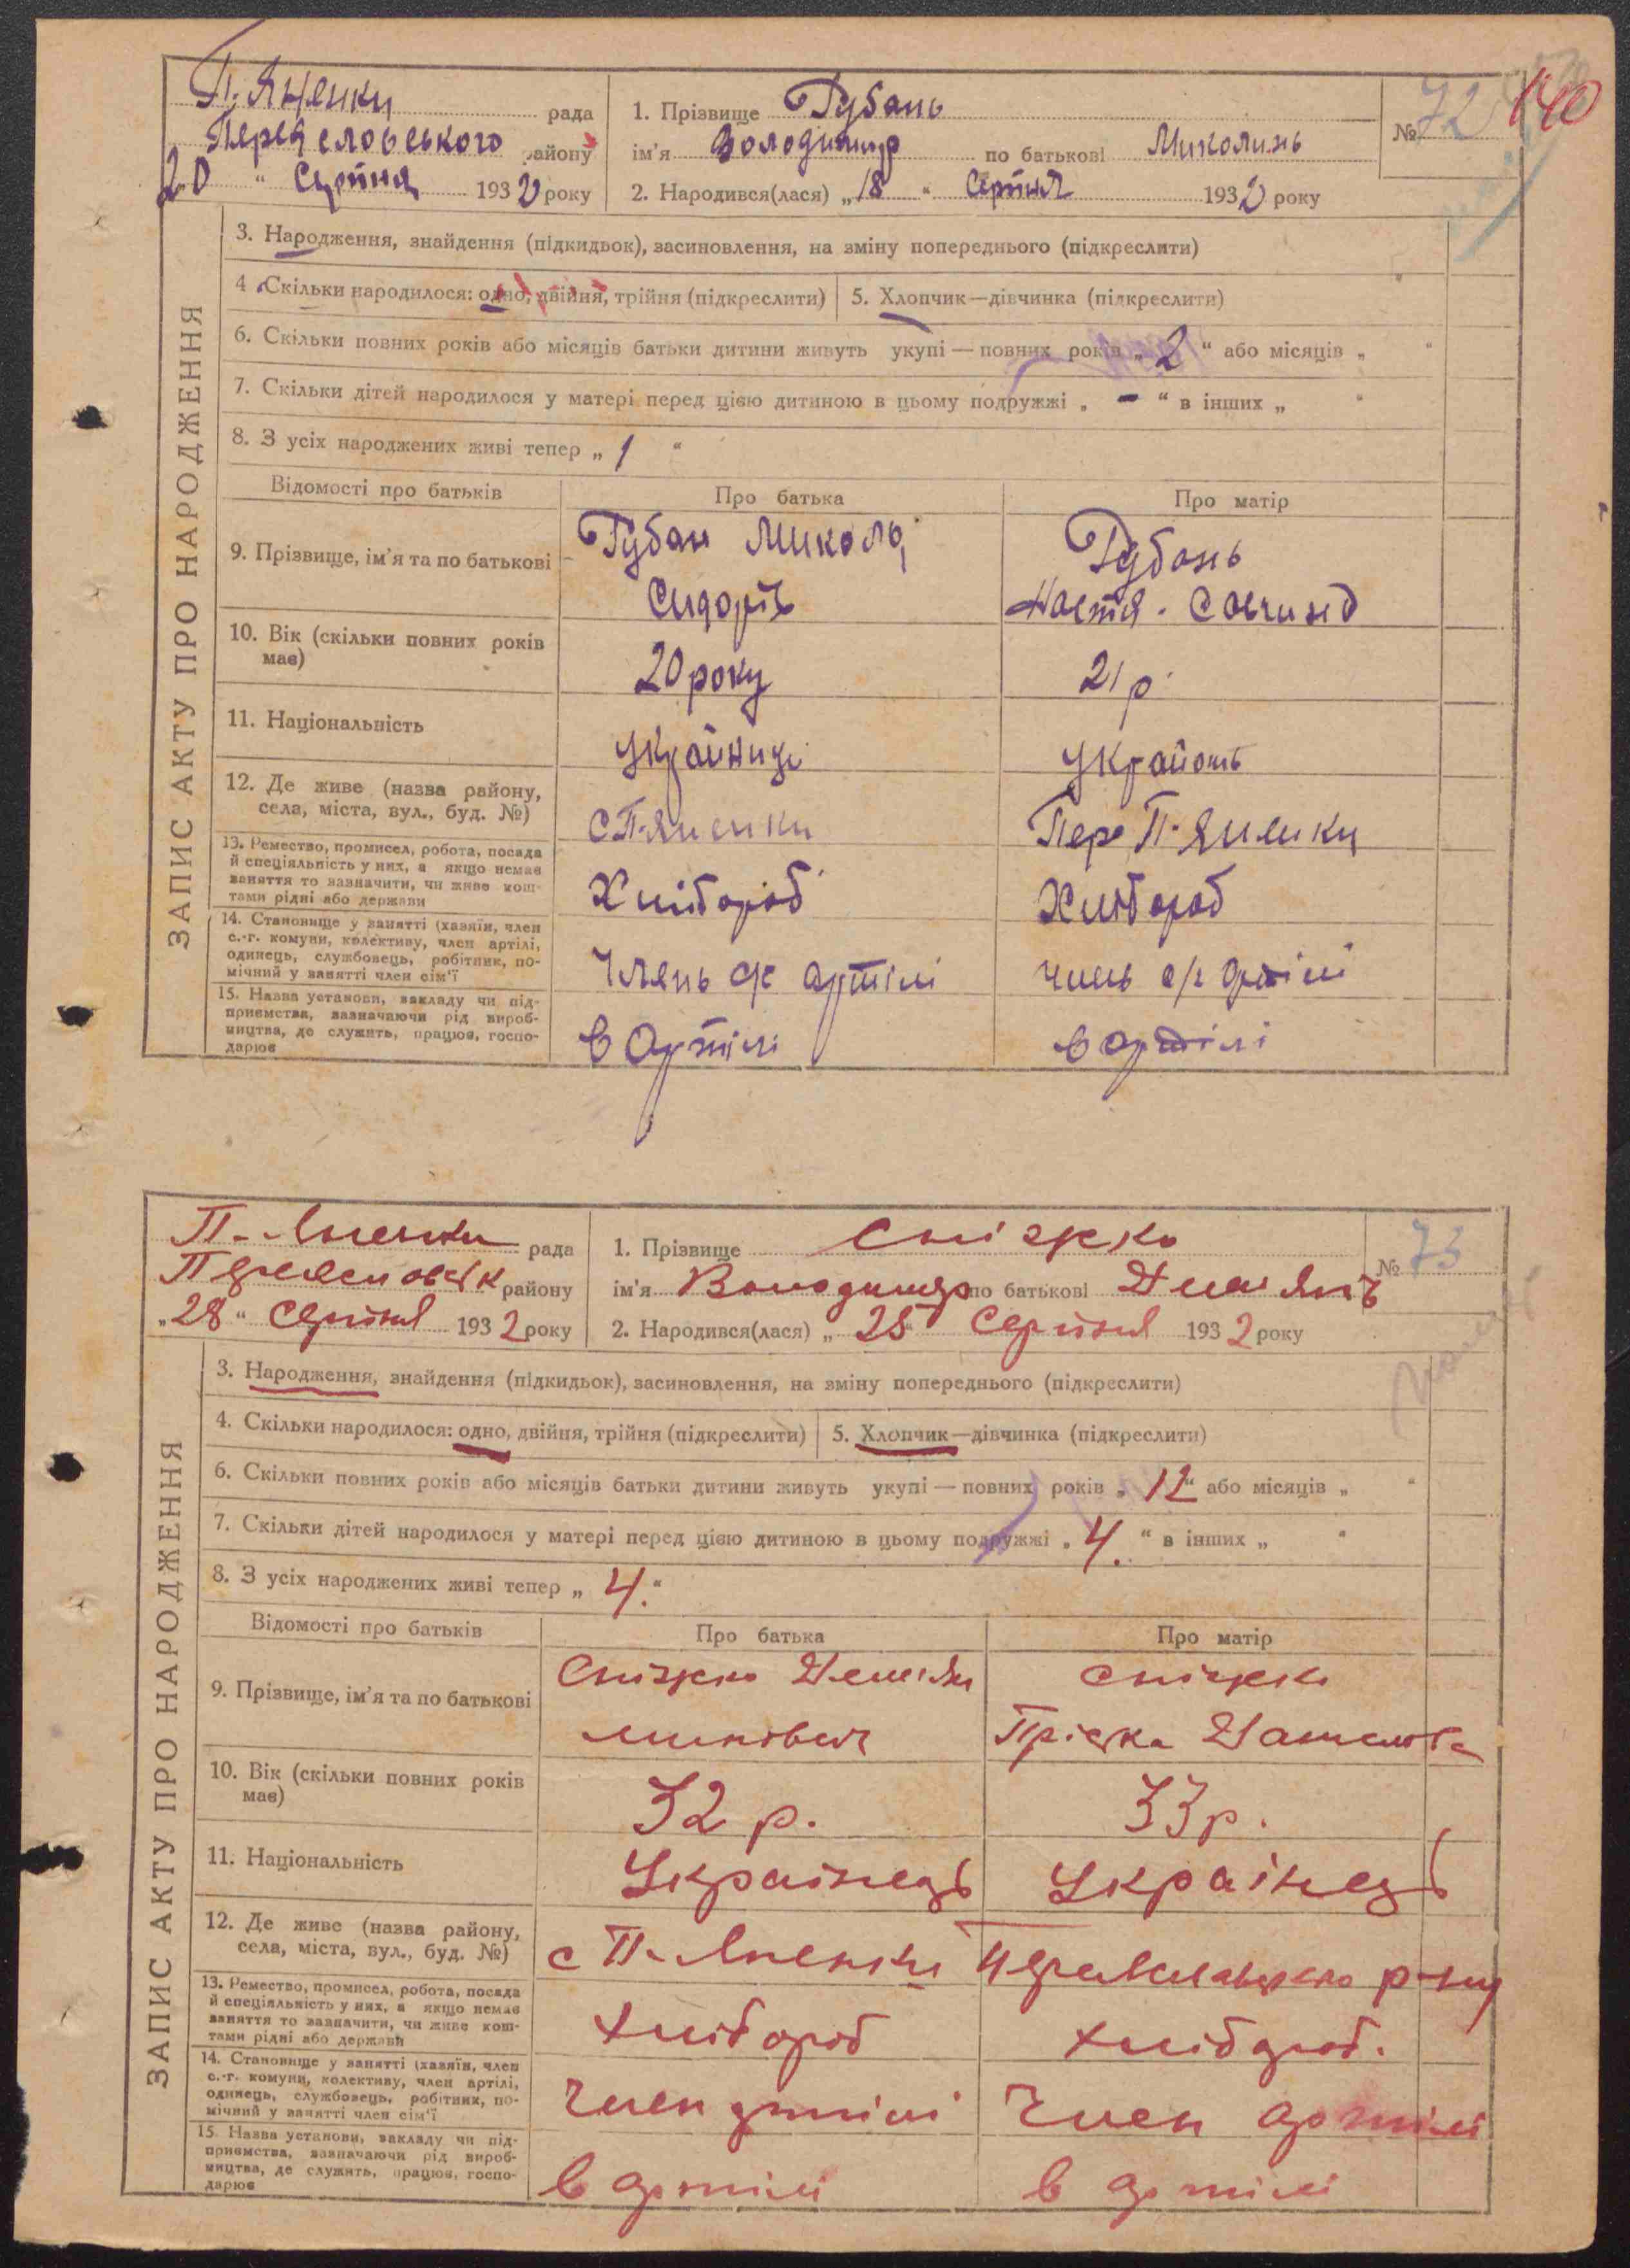 П. Яненки рада
Переяславського району
20 " Серпня 1932 року
1. Прізвище Губань
ім'я Володимир по батькові Миколинь
2. Народився(лася) „18 " Серпня 1932 року
№ 72 140
ЗАПИС АКТУ ПРО НАРОДЖЕННЯ
3. Народження, знайдення (підкидьок), засиновлення, на зміну попереднього (підкреслити)
4. Скільки народилося: одно, двійня, трійня (підкреслити) 5. Хлопчик—дівчинка (підкреслити)
6. Скільки повних років або місяців батьки дитини живуть укупі — повних років „ 2 " або місяців „ "
7. Скільки дітей народилося у матері перед цією дитиною в цьому подружжі „ - " в інших „ "
8. З усіх народжених живі тепер „ 1 "
Відомості про батьків Про батька Про матір
9. Прізвище, ім'я та по батькові
Губан Микола
Сидорів
Губань
Настя
10. Вік (скільки повних років
має)
20 року 21 р
11. Національність
12. Де живе (назва району,
села, міста, вул., буд. №)
с П-Яненки Пере П-Яненки
13. Ремество, промисел, робота, посада
й спеціяльність у них, а якщо немає
заняття то зазначити, чи живе кош-
тами рідні або держави
Хлібороб Хлібороб
14. Становище у занятті (хазяїн, член
с.-г. комуни, колективу, член артілі,
одинець, службовець, робітник, по-
мічний у занятті член сім'ї
Члень с/г артілі член с/г артілі
15. Назва установи, закладу чи під-
приємства, зазначаючи рід вироб-
ництва, де служить, працює, госпо-
дарює
в Артілі в артілі
П-Яненки рада
району
„28 " Серпня 1932 року
1. Прізвище Сніжко
ім'я Володимир по батькові Демянів
2. Народився(лася) „ 28 " Серпня 1932 року
№ 73
ЗАПИС АКТУ ПРО НАРОДЖЕННЯ
3. Народження, знайдення (підкидьок), засиновлення, на зміну попереднього (підкреслити)
4. Скільки народилося: одно, двійня, трійня (підкреслити) 5. Хлопчик—дівчинка (підкреслити)
6. Скільки повних років або місяців батьки дитини живуть укупі — повних років „ 12 " або місяців „ "
7. Скільки дітей народилося у матері перед цією дитиною в цьому подружжі „ 4. " в інших „ "
8. З усіх народжених живі тепер „ 4. "
Відомості про батьків Про батька Про матір
9. Прізвище, ім'я та по батькові
Сніжко Демян
Сніжко
Пріська
10. Вік (скільки повних років
має)
32 р. 33 р.
11. Національність
Українець Українець
12. Де живе (назва району,
села, міста, вул., буд. №)
с П-Яненки р-ну
13. Ремество, промисел, робота, посада
й спеціяльність у них, а якщо немає
заняття то зазначити, чи живе кош-
тами рідні або держави
хлібороб хлібороб.
14. Становище у занятті (хазяїн, член
с.-г. комуни, колективу, член артілі,
одинець, службовець, робітник, по-
мічний у занятті член сім'ї
Член артілі Член артілі
15. Назва установи, закладу чи під-
приємства, зазначаючи рід вироб-
ництва, де служить, працює, госпо-
дарює
в артілі в артілі